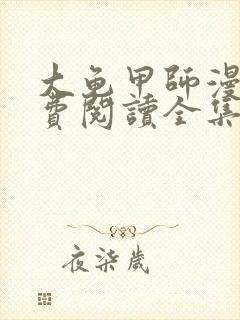 大龟甲師漫
費閱讀全集
夜柒歲